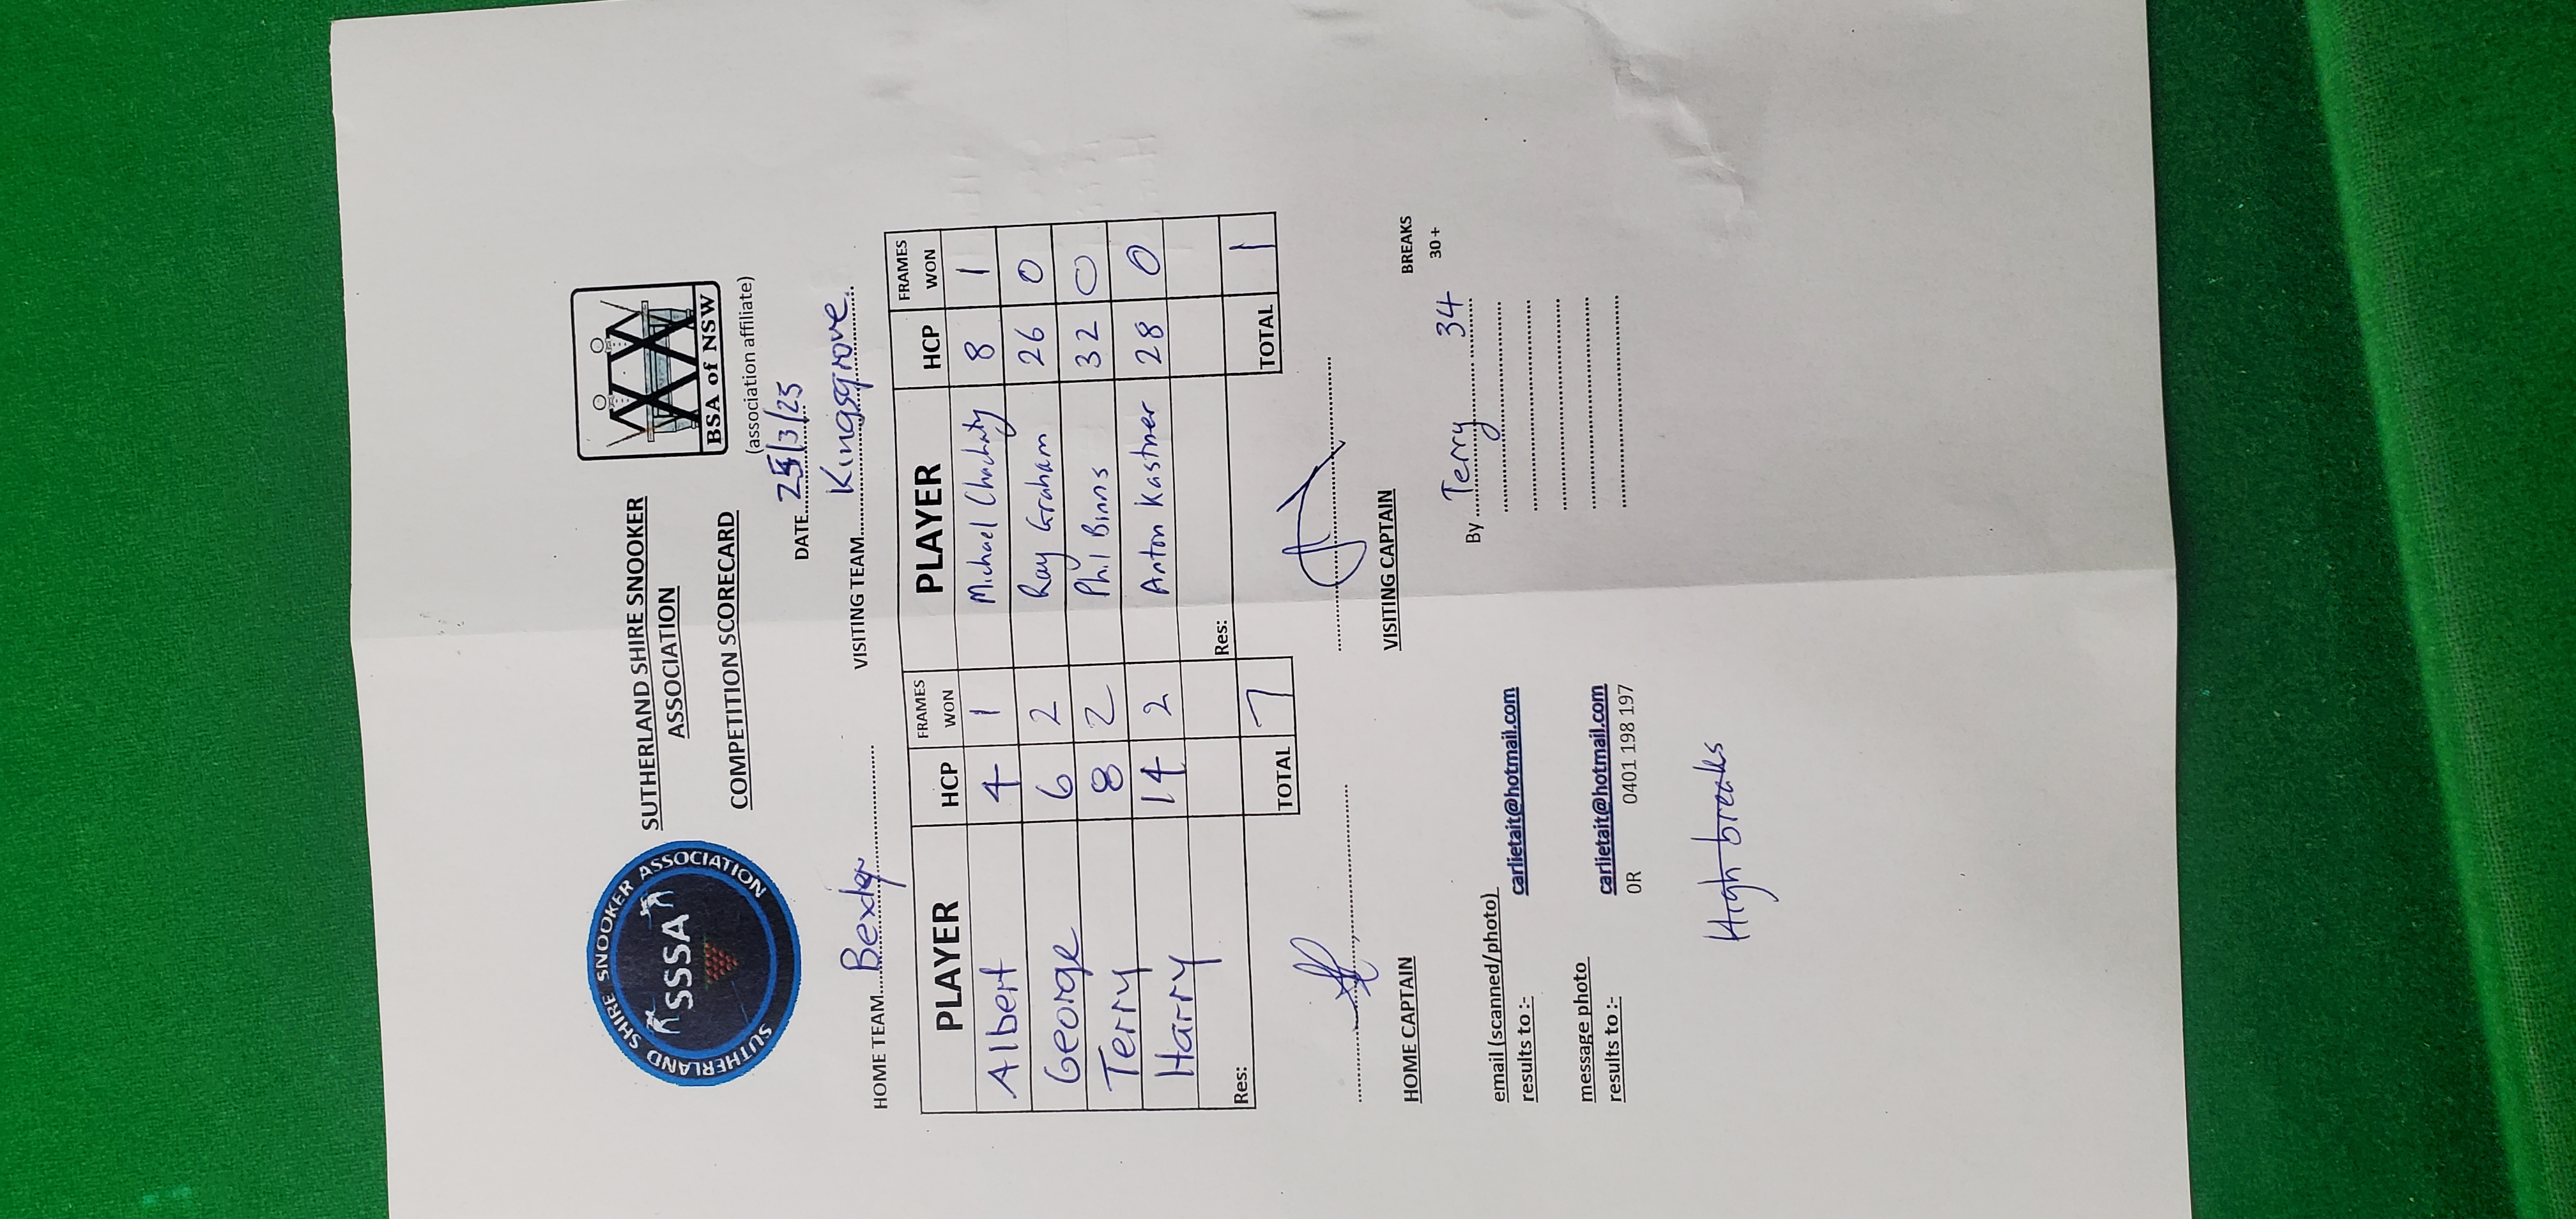 SUTHERLAND SHIRE SNOOKER ASSOCIATION
SSSA
SUTHERLAND SHIRE SNOOKER
ASSOCIATION
COMPETITION SCORECARD
BSA of NSW
(association affiliate)
DATE 25/3/25
HOME TEAM Bexley VISITING TEAM Kingsgrove
PLAYER HCP FRAMES WON PLAYER HCP FRAMES WON
Albert 4 1 Michael 8 1
George 6 2 Ray Graham 26 0
Terry 8 2 Phil Binns 32 0
Harry 14 2 Anton Kastner 28 0
Res: Res:
TOTAL 7 TOTAL 1
HOME CAPTAIN VISITING CAPTAIN
BREAKS
30+
email (scanned/photo)
results to :- carlietait@hotmail.com
By Terry 34
message photo
results to :- carlietait@hotmail.com
OR 0401 198 197
High breaks